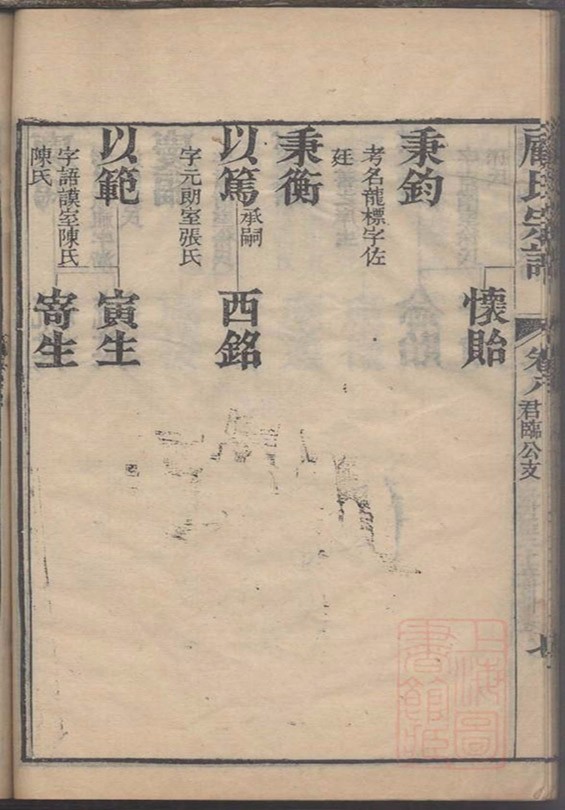 顧氏宗譜
卷六
君臨公支
懷貽
秉鈞
考名龍標字佐
廷
秉衡
以篤
承嗣
西銘
字元朗室張氏
以範
寅生
字語謨室陳氏
陳氏
寄生
上海圖
書館藏